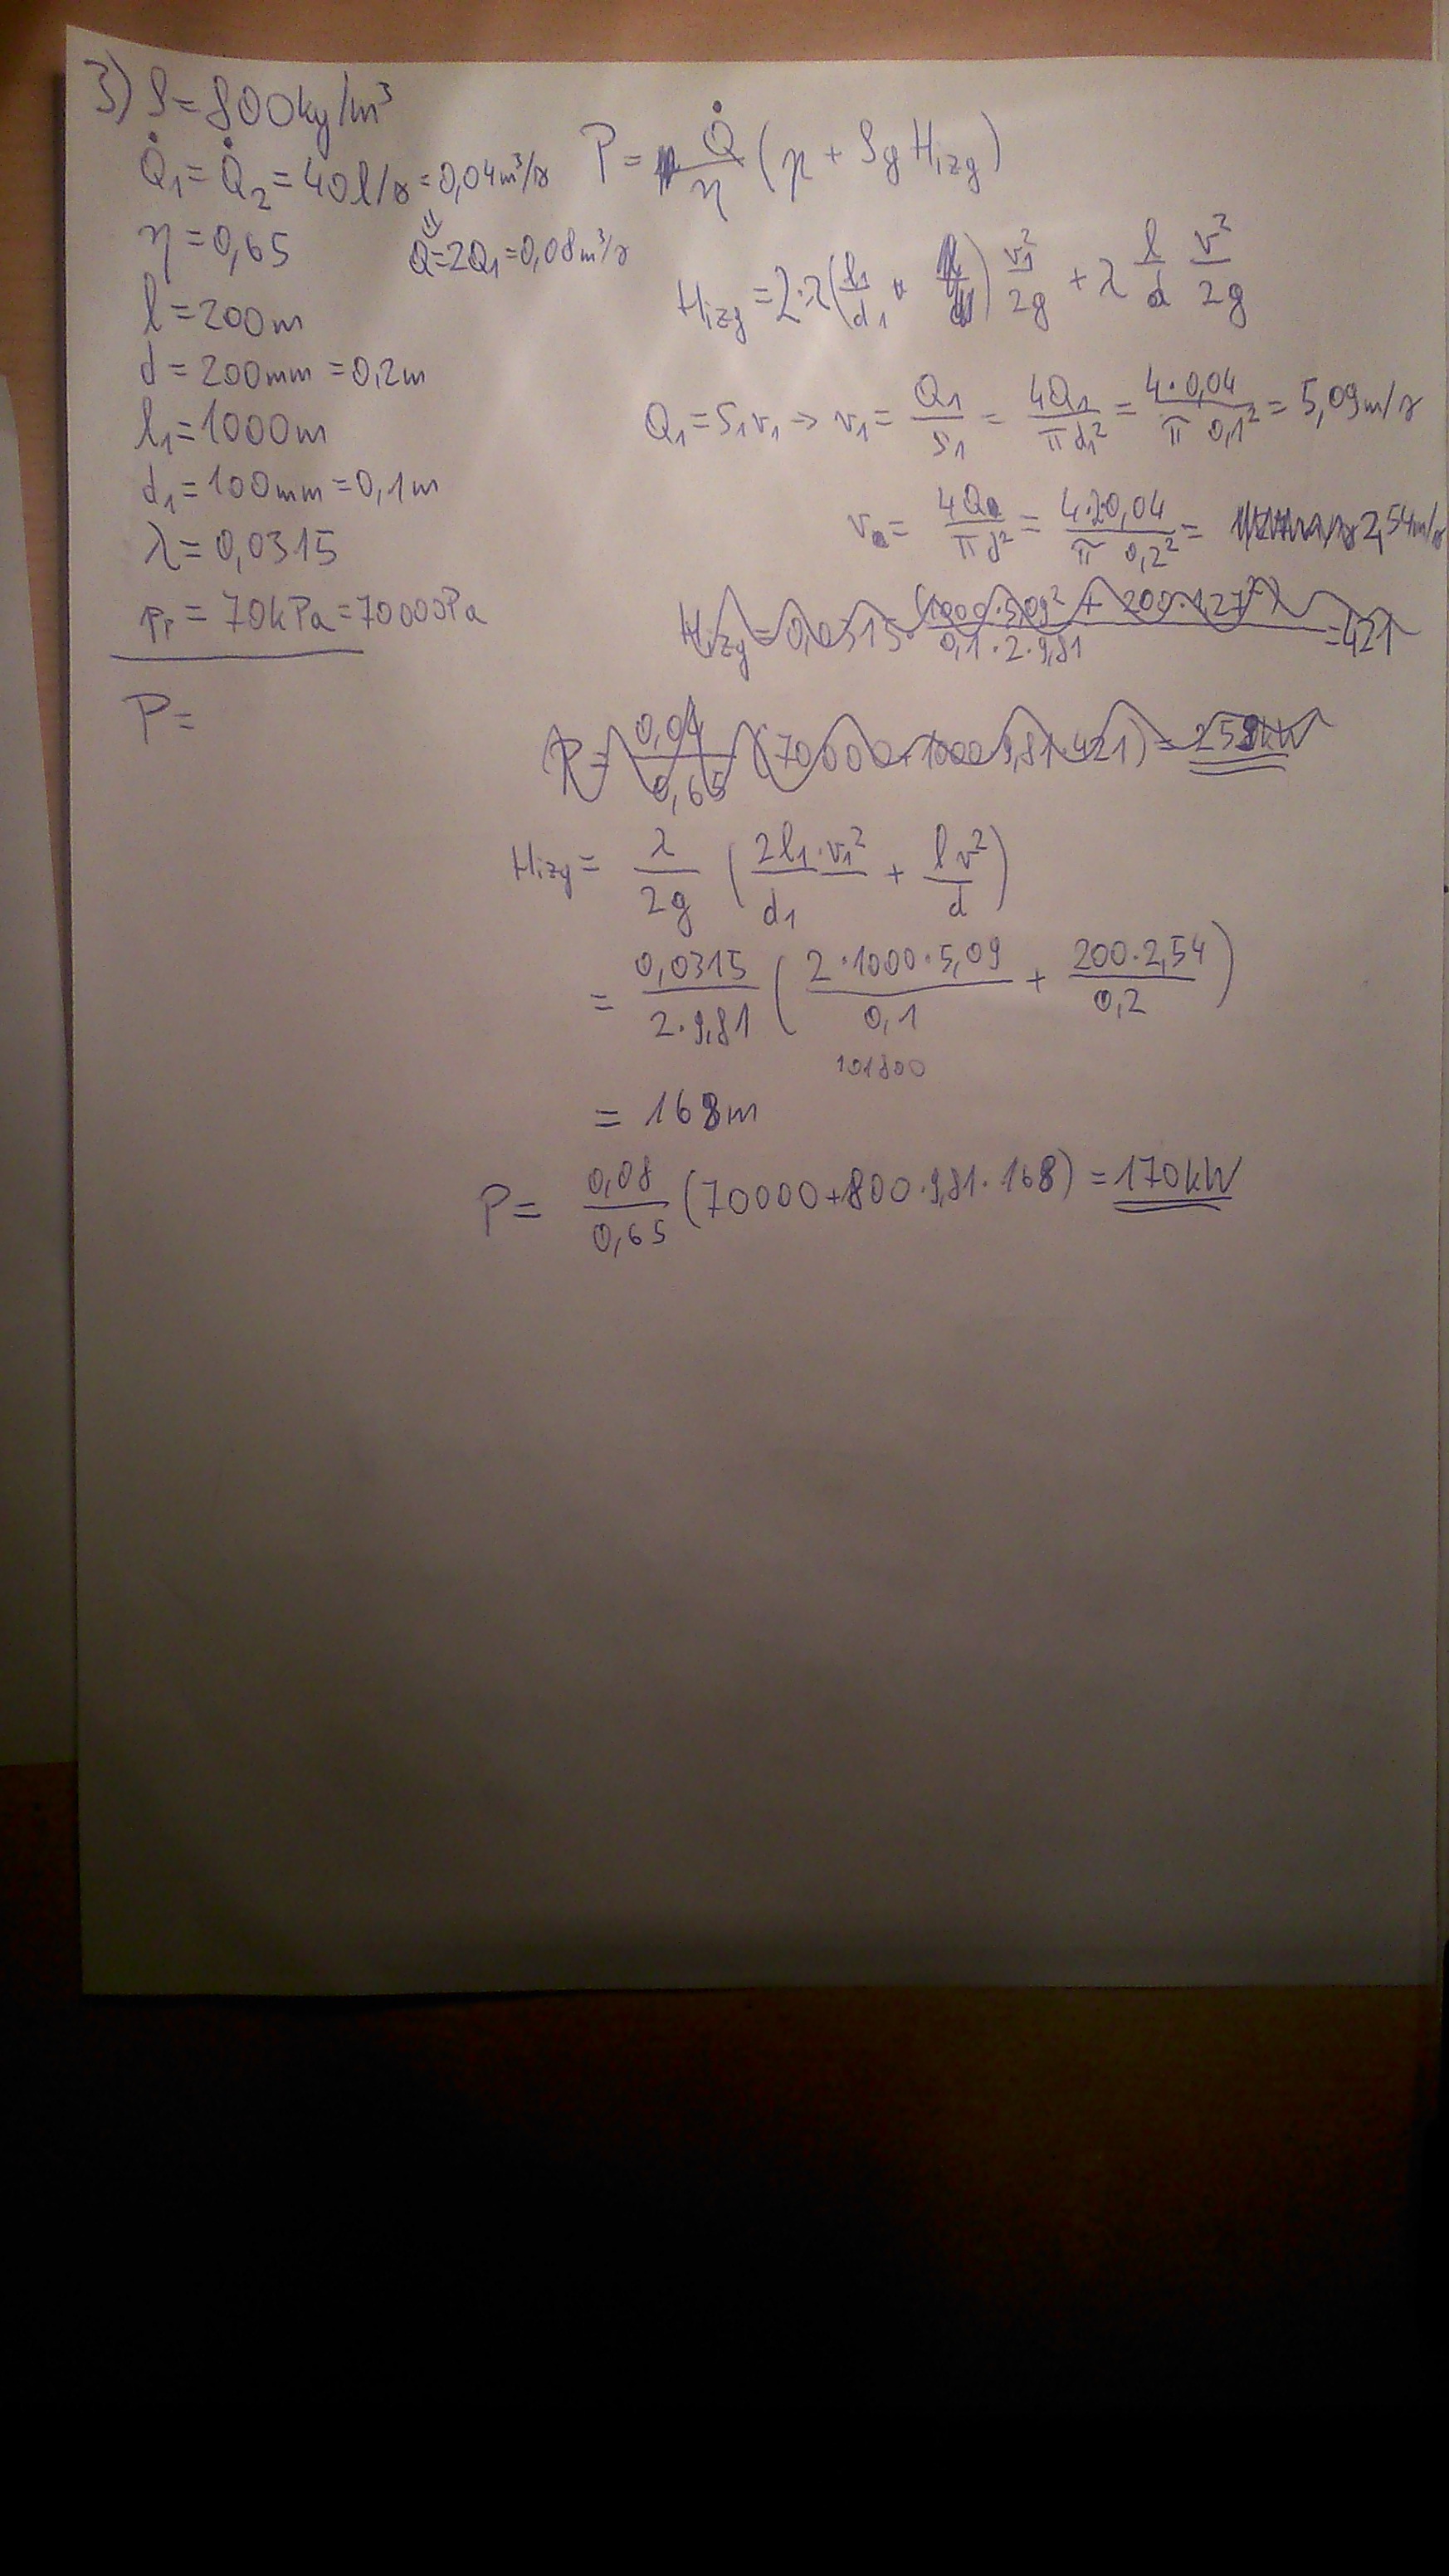 3) ρ = 800kg/m³
Q̇₁ = Q̇₂ = 40l/s = 0,04m³/s
⇓
Q = 2Q₁ = 0,08m³/s
η = 0,65
l = 200m
d = 200mm = 0,2m
l₁ = 1000m
d₁ = 100mm = 0,1m
λ = 0,0315
pₚ = 70kPa = 70000Pa
P =
P = Q̇/η (p + ρgH_izg)
H_izg = 2·λ(l₁/d₁) v₁²/2g + λ l/d v²/2g
Q₁ = S₁v₁ → v₁ = Q₁/S₁ = 4Q₁/πd₁² = 4·0,04/π 0,1² = 5,09m/s
v = 4Q/πd² = 4·2·0,04/π 0,2² = 2,54m/s
H_izg = 0,0315·(1000·5,09² + 200·1,27²)/0,1·2·9,81 = 421
P = 0,04/0,65 (70000+1000·9,81·421) = 258kW
H_izg = λ/2g (2l₁·v₁²/d₁ + lv²/d)
= 0,0315/2·9,81 (2·1000·5,09/0,1 + 200·2,54/0,2)
101800
= 168m
P = 0,08/0,65 (70000+800·9,81·168) = 170kW